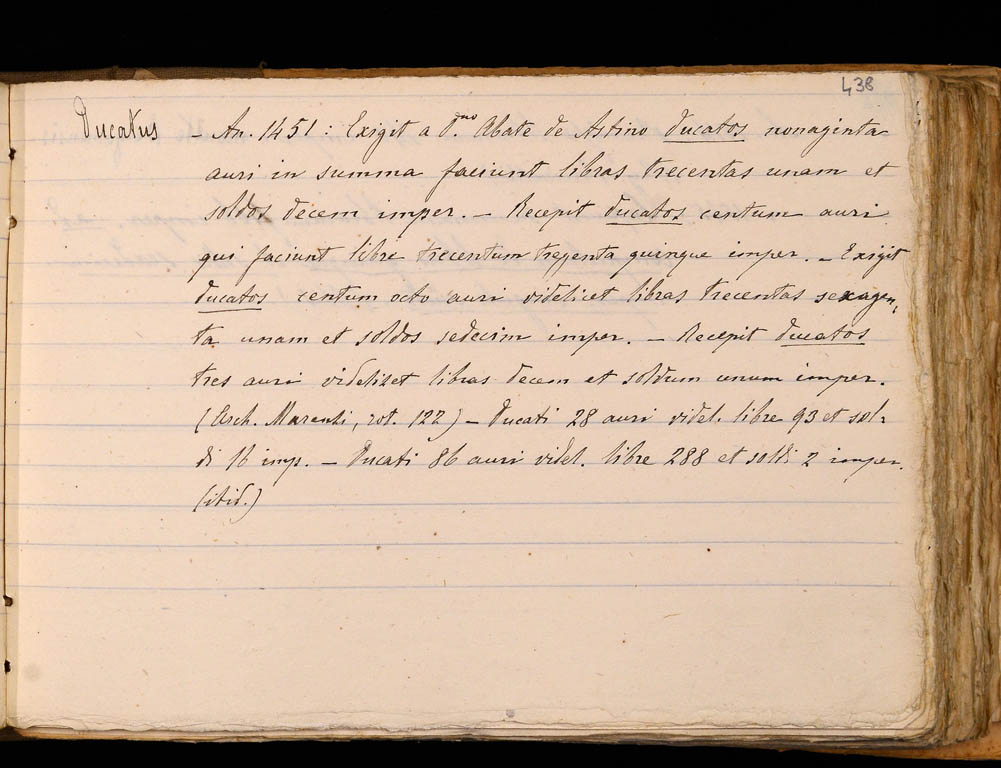 438
Ducatus - An. 1451: Exigit a d.no Abate de Astino ducatos nonaginta
auri in summa faciunt libras trecentas unam et
soldos decem imper. - Recepit ducatos centum auri
qui faciunt libre trecentum tregenta quinque imper. - Exigit
ducatos centum octo auri videlicet libras trecentas sexagen,
ta unam et soldos sedecim imper. - Recepit ducatos
tres auri videlizet libras decem et soldum unum imper.
(Arch. Marenzi, rot. 122) - Ducati 28 auri videl. libre 93 et sol-
di 16 imp. - Ducati 86 auri videl. libre 288 et soldi 2 imper.
(ibid.)